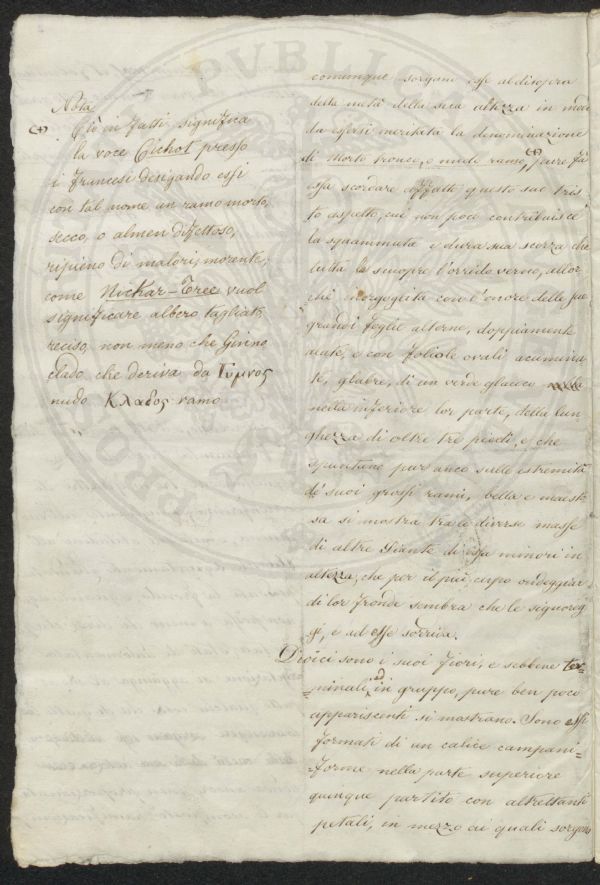 Nota
(+) Ciò in fatti significa
la voce Cichot presso
i Francesi designando essi
con tal nome un ramo morto,
secco, o almen difettoso,
ripieno di malori, morente,
come Nickar-Tree vuol
significare albero tagliato,
reciso, non meno che Ginno
clado che deriva da Γυμνος
nudo Κλαδος ramo
comunque sorgano esse al disopra
della metà della sua altezza in modo
da essersi meritata la denominazione
di Morto tronco, o nudo ramo (+), pure fà
essa scordare affatto questo suo tris
to aspetto, cui non poco contribuisce
la squammuta e dura sua scorza che
tutta la scuopre l'orrido verno, allor
chè inorgoglita con l'onore delle sue
grandi foglie alterne, doppiamente
alate, e con foliole ovali acumina
te, glabre, di un verde glauco
nella inferiore lor parte, della lun
ghezza di oltre tre piedi, e che
spuntano pur anco sulle estremità
de' suoi grossi rami, bella e maesto
sa si mostra tra le diverse masse
di altre Piante di essa minori in
altezza, che per il più crespo ondeggiar
di lor fronde sembra che le signoreg
gi, e ad esse sorrida.
Dioici sono i suoi fiori, e sebbene ter=
minali, ed in gruppo, pure ben poco
appariscenti si mostrano. Sono essi
formati di un calice campani=
=forme nella parte superiore
quinque partito con altrettanti
petali, in mezzo ai quali sorgono